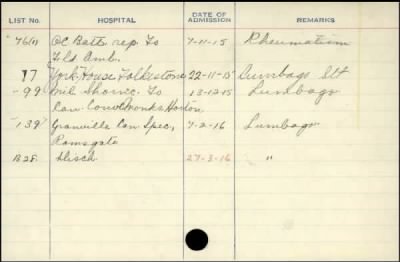 LIST NO. HOSPITAL DATE OF ADMISSION REMARKS
76(1) OC Batts rep. To 7-11-15 Rheumatism
Fld Amb.
17 York House Folkestone 22-11-15 Lumbago Slt
-99 Mil Shornc. To 13-12-15 Lumbago
Can Conv Monks Horton
"139" Granville Can Spec, 7-2-16 Lumbago
Ramsgate
B28. Disch 27-3-16 "